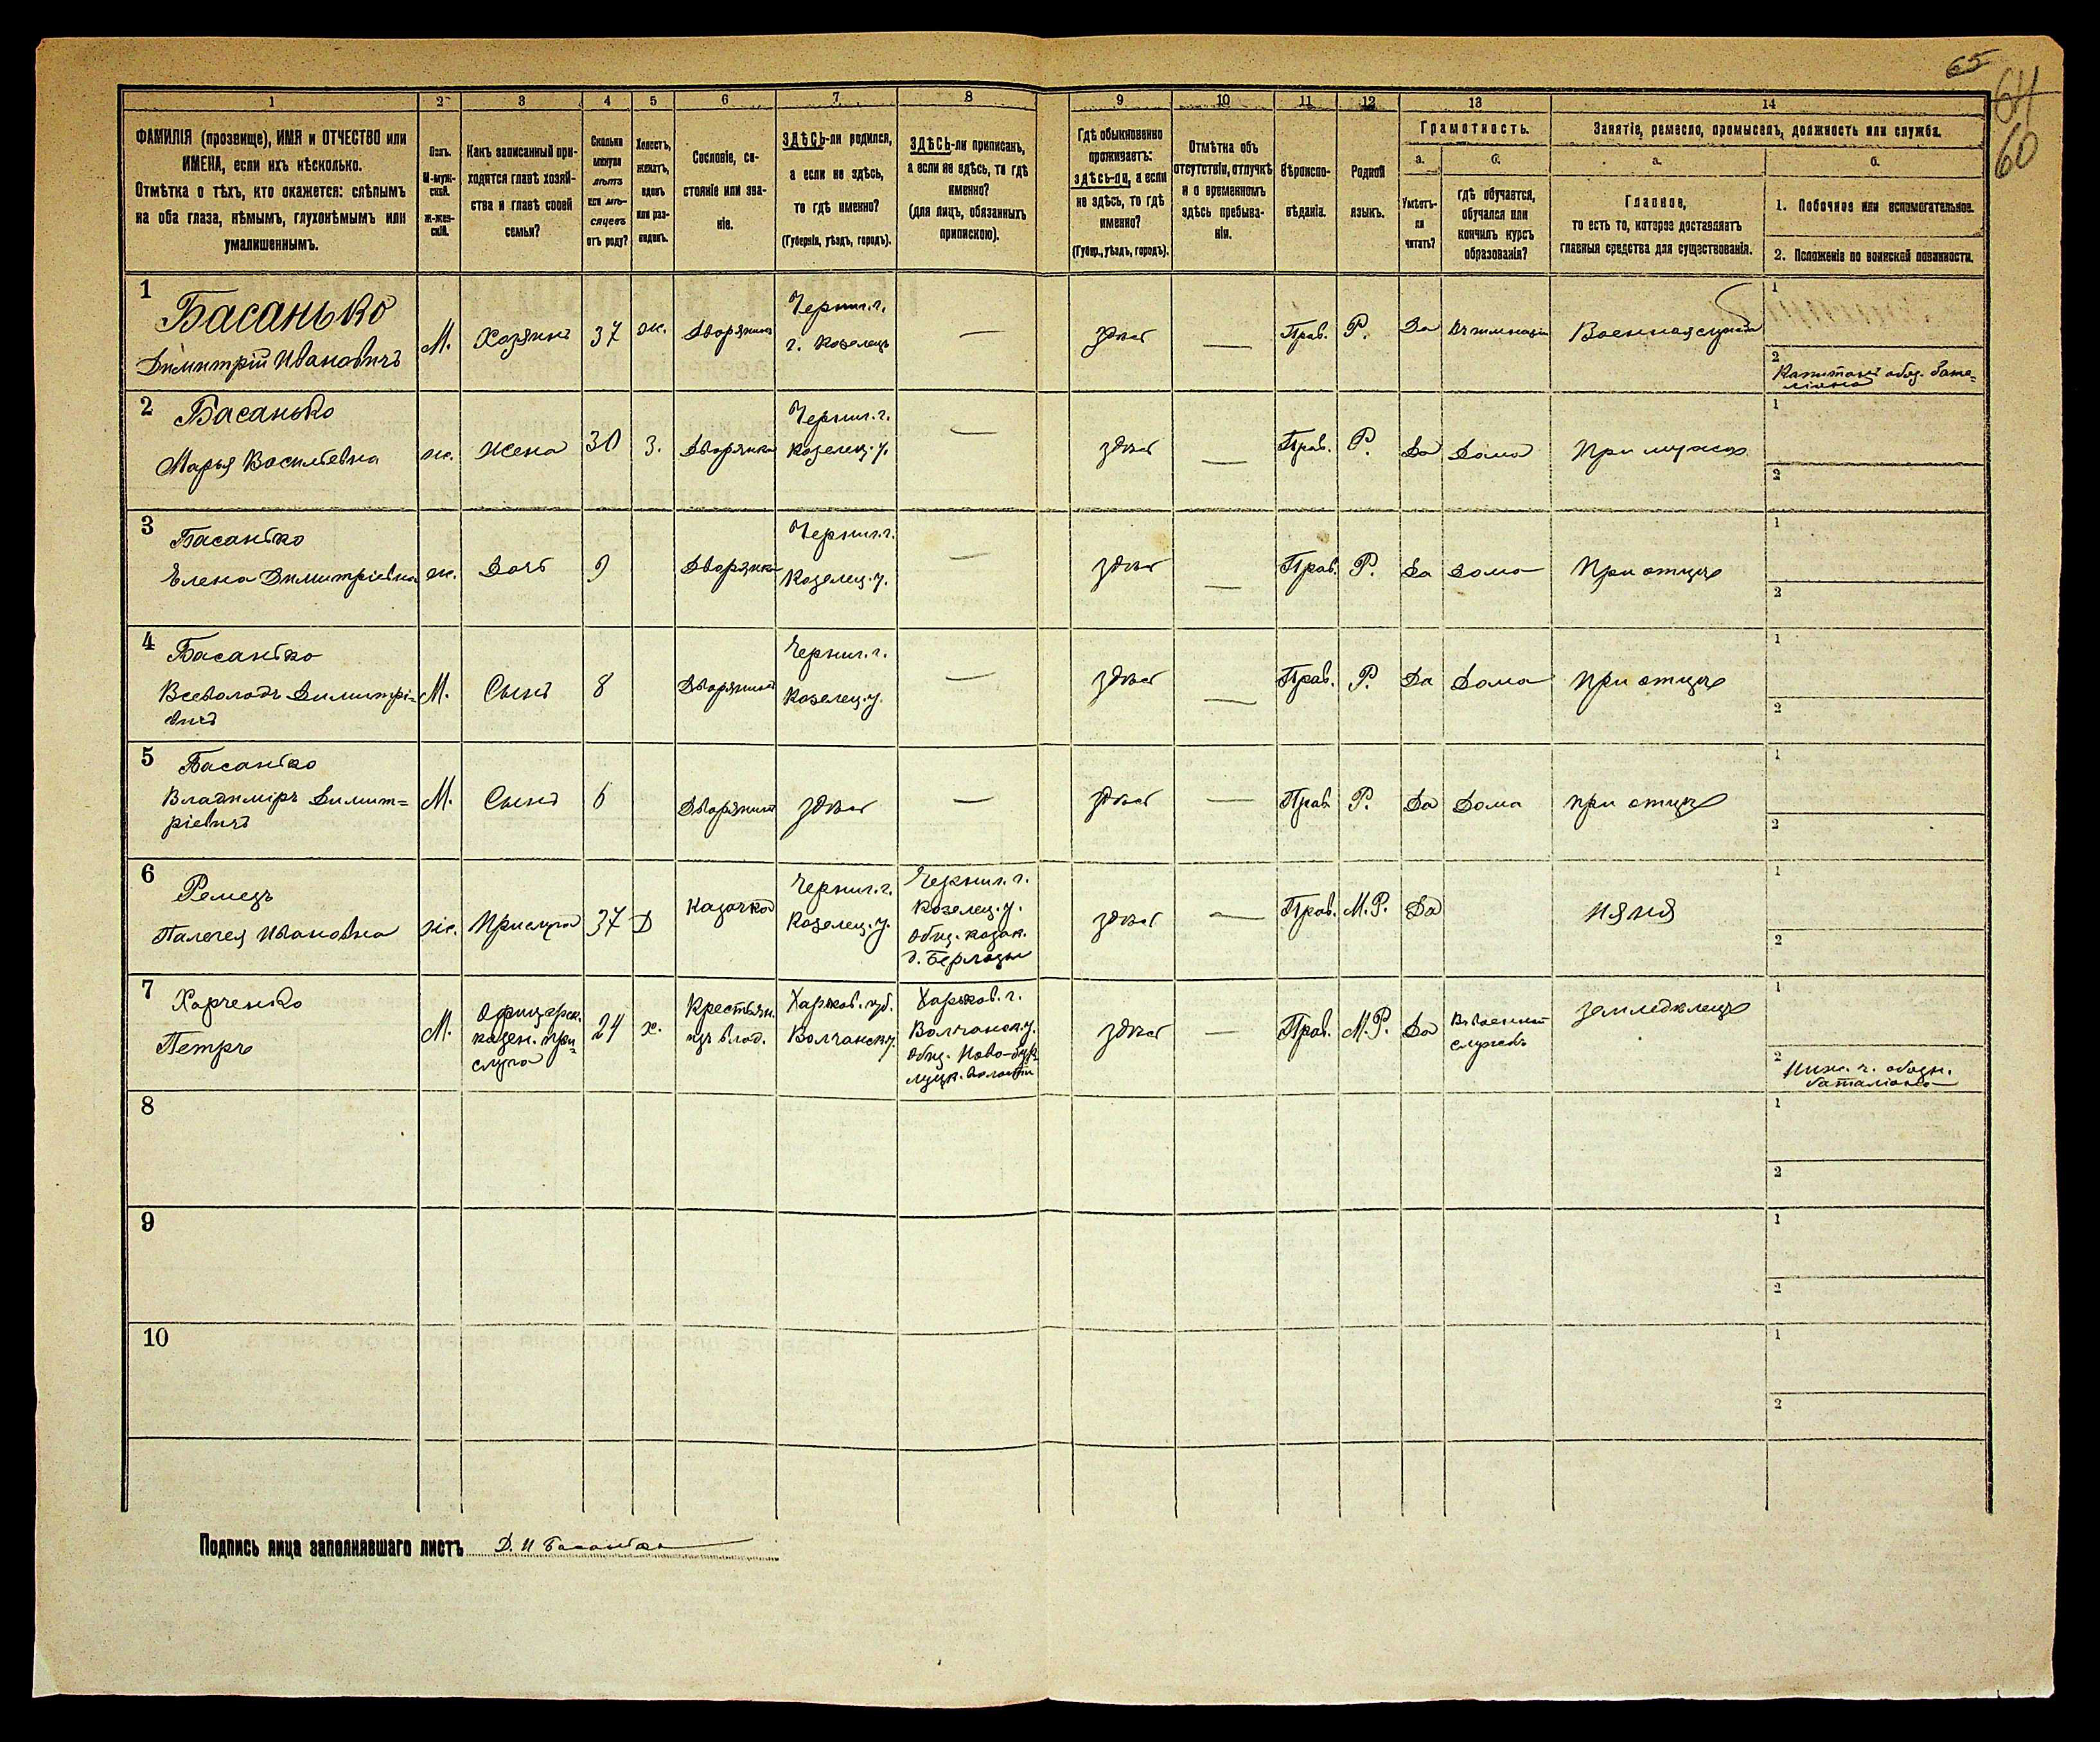 65
64
60
1 2 3 4 5 6 7 8 9 10 11 12 13 14
ФАМИЛІЯ (прозвище), ИМЯ и ОТЧЕСТВО или
ИМЕНА, если ихъ нѣсколько.
Отмѣтка о тѣхъ, кто окажется: слѣпымъ
на оба глаза, нѣмымъ, глухонѣмымъ или
умалишеннымъ.
Полъ.
М-муж-
ской.
Ж-жен-
скій.
Какъ записанный при-
ходится главѣ хозяй-
ства и главѣ своей
семьи?
Сколько
минуло
лѣтъ
или мѣ-
сяцевъ
отъ роду?
Холостъ,
женатъ,
вдовъ
или раз-
веденъ.
Сословіе, со-
стояніе или зва-
ніе.
ЗДѢСЬ-ли родился,
а если не здѣсь,
то гдѣ именно?
(Губернія, уѣздъ, городъ).
ЗДѢСЬ-ли приписанъ,
а если не здѣсь, то гдѣ
именно?
(для лицъ, обязанныхъ
припискою).
Гдѣ обыкновенно
проживаетъ:
здѣсь-ли, а если
не здѣсь, то гдѣ
именно?
(Губер., уѣздъ, городъ).
Отмѣтка объ
отсутствіи, отлучкѣ
и о временномъ
здѣсь пребыва-
ніи.
Вѣроиспо-
вѣданіе.
Родной
языкъ.
Грамотность.
а.
Умѣетъ-
ли
читать?
б.
гдѣ обучается,
обучался или
кончилъ курсъ
образованія?
Занятіе, ремесло, промыселъ, должность или служба.
а.
Главное,
то есть то, которое доставляетъ
главныя средства для существованія.
б.
1. Побочное или вспомогательное.
2. Положеніе по воинской повинности.
1
Басанько
Димитрій Ивановичъ
М.
Хозяинъ
37
ж.
Дворянинъ
Черниг. г.
г. Козелецъ
—
здѣсь
—
Прав.
Р.
Да
Въ гимназіи
Военная служба
1
2
Капитанъ обоз. бата=
ліона
2
Басанько
Марья Васильевна
ж.
Жена
30
З.
Дворянка
Черниг. г.
Козелец. у.
—
здѣсь
—
Прав.
Р.
Да
Дома
При мужѣ
1
2
3
Басанько
Елена Димитріевна
ж.
Дочь
9
Дворянка
Черниг. г.
Козелец. у.
—
здѣсь
—
Прав.
Р.
Да
Дома
При отцѣ
1
2
4
Басанько
Всеволодъ Димитрі=
вичъ
М.
Сынъ
8
Дворянинъ
Черниг. г.
Козелец. у.
—
здѣсь
—
Прав.
Р.
Да
Дома
при отцѣ
1
2
5
Басанько
Владиміръ Димит=
ріевичъ
М.
Сынъ
6
Дворянинъ
здѣсь
—
здѣсь
—
Прав.
Р.
Да
Дома
при отцѣ
1
2
6
Ремезъ
Палегея Ивановна
ж.
Прислуга
37
Д
Казачка
Черниг. г.
Козелец. у.
Черниг. г.
Козелец. у.
общ. козак.
д. Берлозы
здѣсь
—
Прав.
М.Р.
Да
няня
1
2
7
Харченко
Петръ
М.
Офицерск.
казен. при=
слуга
24
х.
Крестьян.
изъ влад.
Харьков. губ.
Волчанск. у.
Харьков. г.
Волчанск. у.
общ. Ново-бур
луцк. волости
здѣсь
—
Прав.
М.Р.
Да
Въ военной
службѣ
земледѣлецъ
1
2
Ниж. ч. обозн.
баталіона
8
1
2
9
1
2
10
1
2
Подпись лица заполнявшаго листъ Д. И Басанько